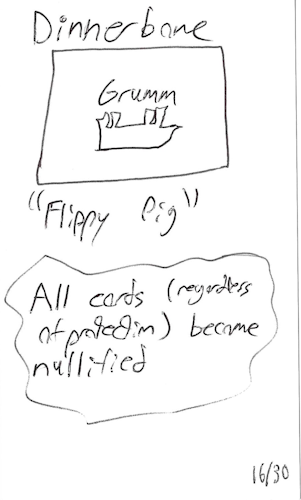 Dinnerbone
Grumm
"Flippy Pig"
All cards (regardless
of protection) become
nullified
16/30